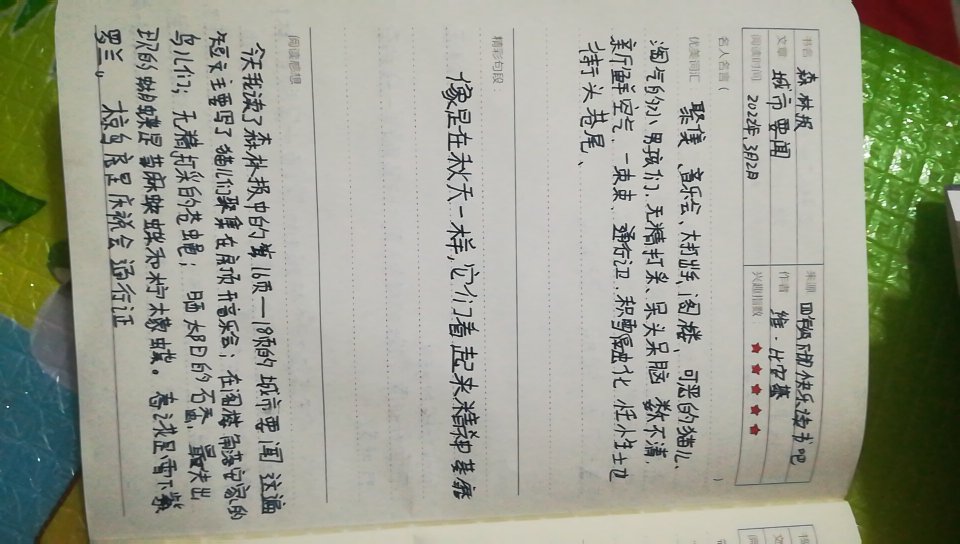 书名 森林报 来源 四年级下册快乐读书吧
文章 城市要闻 作者 维·比安基
阅读时间 2022年3月2日 兴趣指数：★★★★★
名人名言（ ）
优美词汇 聚集、音乐会、大打出手、阁楼、可恶的猫儿、
淘气的小男孩们、无精打采、呆头呆脑、数不清，
新鲜空气、一束束、通行证、积雪融化、
街头巷尾、
精彩句段
像是在秋天一样，它们看起来精神萎靡
阅读感想
今天我读了森林报中的第16页——18页的城市要闻 这篇
短文主要写了猫儿们聚集在房顶开音乐会；在阁楼角落安家的
鸟儿们；无精打采的苍蝇；晒太阳的石蚕，最先出
现的蝴蝶是荨麻蛱蝶和柠檬蝶。